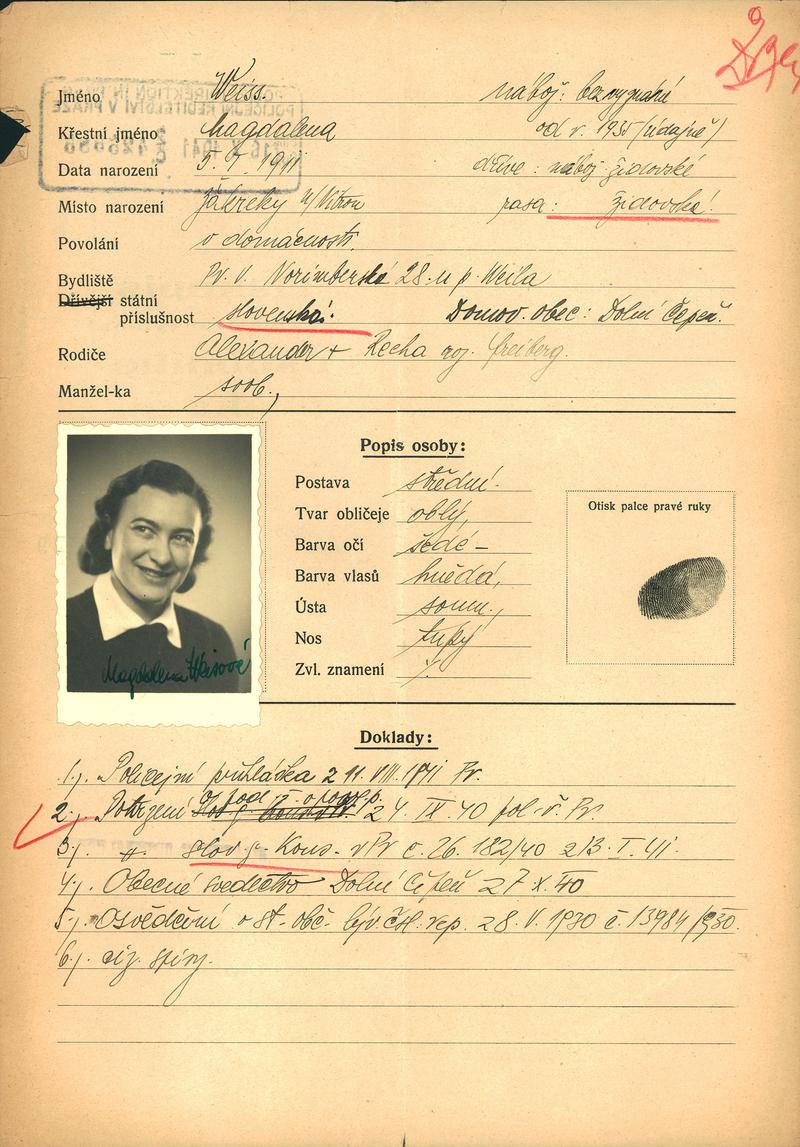 Jméno Weiss. nábož: bez vyznání
Křestní jméno Magdalena od r. 1935 (údajně)
Data narození 5. 7. 1911 dříve: nábož židovské
Místo narození n/Vitron rasa: židovská!
Povolání v domácnosti.
Bydliště Pr. V. Norimberská 28. u p. Weila
Dřívější státní
příslušnost slovenská. Domov. obec: Dolní Čepeň.
Rodiče Alexander + Recha roz. Freiberg.
Manžel-ka svob.,
Popis osoby:
Postava střední.
Tvar obličeje oblý,
Barva očí šedé -
Barva vlasů hnědá,
Ústa soum.,
Nos tupý
Zvl. znamení ·/.
Otisk palce pravé ruky
Magdalena Weisová
Doklady:
1.). Policejní přihláška z 11. VIII. 1941 Pr.
2.). Potvrzení z 4. IX. 40 pol. ř. Pr.
3.). slov. g. Kons. v Pr č. 26. 182/40 z 13. I. 41.
4.). Obecné svědectvo Dolní Čepeň 27 X. 40
5.). Osvědčení o st. obč. býv. čsl. rep. 28. V. 1930 č. 13984/1930.
6.). ciz. spisy.